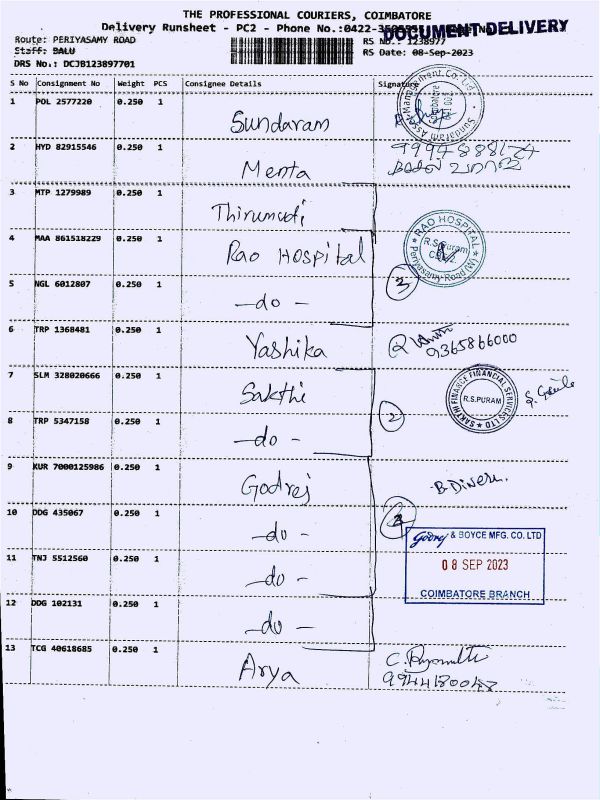 THE PROFESSIONAL COURIERS, COIMBATORE
Delivery Runsheet - PC2 - Phone No.:0422-
DOCUMENT DELIVERY
Route: PERIYASAMY ROAD
RS No.: 1238977
Staff: BALU
RS Date: 08-Sep-2023
DRS No.: DCJB123897701
S No Consignment No Weight PCS Consignee Details Signature
1 POL 2577220 0.250 1 Sundaram
2 HYD 82915546 0.250 1 Menta
3 MTP 1279989 0.250 1 Thirumudi
4 MAA 861518229 0.250 1 Rao HOSPital
RAO HOSPITAL
R.S.Puram
Periyasamy Road (W)
5 NGL 6012807 0.250 1 -do-
3
6 TRP 1368481 0.250 1 Yashika
9365866000
7 SLM 328020666 0.250 1 Sakthi
SAKTHI FINANCE FINANCIAL SERVICES LTD
R.S.PURAM
8 TRP 5347158 0.250 1 -do-
2
9 KUR 7000125986 0.250 1 Godrej
B. Dinesh.
10 DDG 435067 0.250 1 -do-
Godrej & BOYCE MFG. CO. LTD
08 SEP 2023
COIMBATORE BRANCH
11 TNJ 5512560 0.250 1 -do-
12 DDG 102131 0.250 1 -do-
13 TCG 40618685 0.250 1 Arya